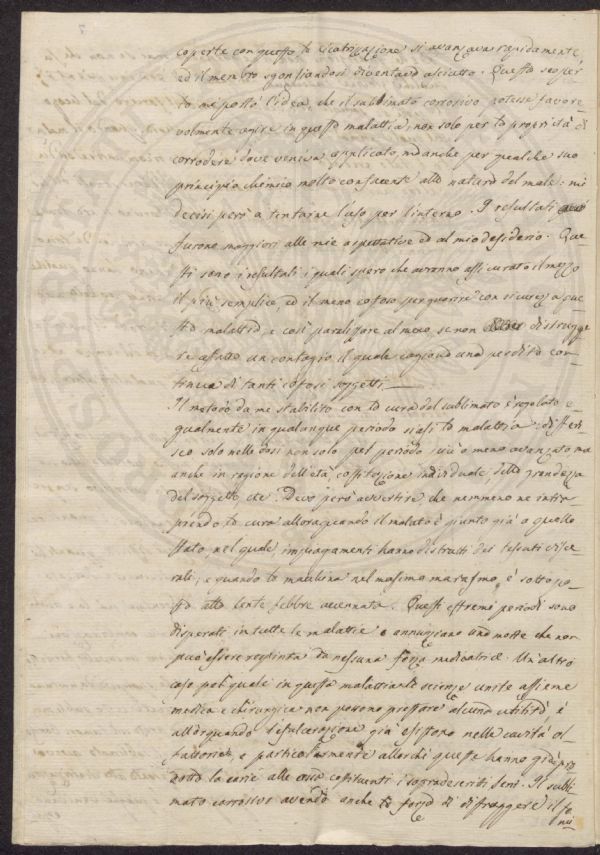 coperte con questo la cicatrizazione si avanzava rapidamente
ed il membro sgonfiandosi diventava asciutto. Questo scoper-
to me portò l'idea, che il sublimato corrosivo potesse favore-
volmente agire in questa malattia, non solo per la proprietà di
corrodere dove veniva applicato, ma anche per qualche suo
principio chimico molto confacente alla natura del male: mi
decisi però a tentarne l'uso per l'interno. I resultati
furono maggiori alle mie aspettative ed al mio desiderio. Que-
sti sono i resultati i quali spero che avranno assicurato il mezzo
il più semplice, ed il meno costoso per guarire con sicurezza que-
sta malattia, e così paralizare al meno, se non distrugge-
re afatto un contagio il quale cagiona una perdita con-
tinua di tanti costosi soggetti.
Il metodo da me stabilito con la cura del sublimato è regolato e-
gualmente in qualunque periodo siasi la malattia: differi-
sco solo nelle dosi non solo pel periodo più o meno avanzato, ma
anche in ragione dell'età, costituzione individuale, della grandezza
del soggetto, etc. Devo però avvertire, che nemmeno ne intra-
prendo la cura alloraquando il malato è giunto già a quello
stato, nel quale impiagamenti hanno distrutti dei tessuti visce-
rali, e quando la macilina nel massimo marasmo, è sottopo-
sta alla lente febbre accennata. Questi estremi periodi sono
disperati in tutte le malattie e annunziano una morte che non
può essere respinta da nessuna forza medicatrice. Un altro
caso pel quale in questa malattia le scienze unite assieme
medica e chirurgica non possono prestare alcuna utilità è
allorquando l'esulcerazione già esistono nella cavità ol-
fattorie, e particolarmente allorchi queste hanno già pro-
dotto la carie alle ossa costituenti i sopradescritti seni. Il subli-
mato corrosivo avendo anche la forza di distruggere il fo-